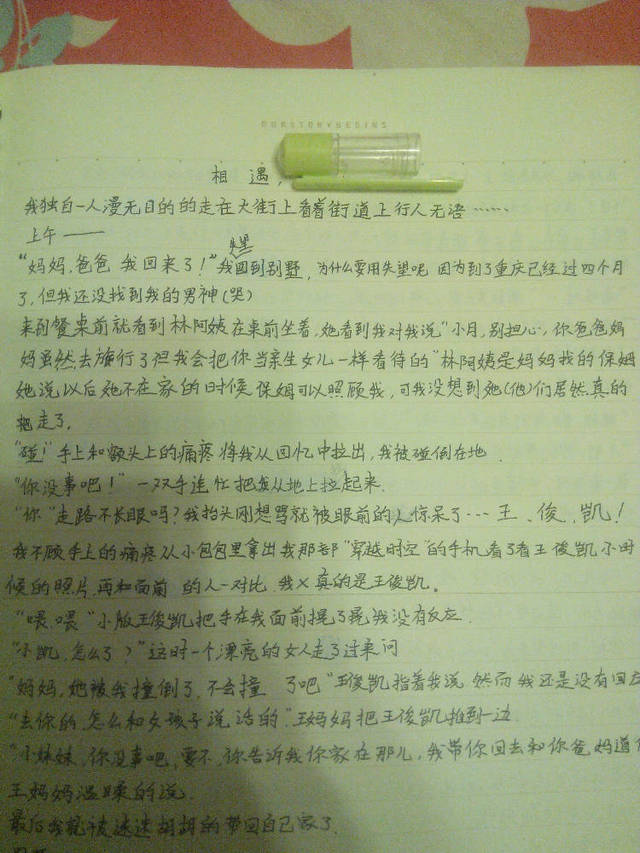 OURSTORYBEGINS
相 遇
我独自一人漫无目的的走在大街上看着街道上行人无语……
上午——
失望
"妈妈,爸爸 我回来了!"我回到别墅,为什么要用失望呢 因为到了重庆已经过四个月
了,但我还没找到我的男神(哭)
来到餐桌前就看到林阿姨在桌前坐着,她看到我对我说"小月,别担心,你爸爸妈
妈虽然去旅行了但我会把你当亲生女儿一样看待的"林阿姨是妈妈我的保姆
她说以后她不在家的时候保姆可以照顾我,可我没想到她(他)们居然真的
走了,
"碰!"手上和额头上的痛疼将我从回忆中拉出,我被碰倒在地.
"你没事吧!"一双手连忙把我从地上拉起来.
"你"走路不长眼吗?我抬头刚想骂就被眼前的人惊呆了…王、俊、凯!
我不顾手上的痛疼从小包包里拿出我那部"穿越时空"的手机看了看王俊凯小时
候的照片,再和面前 的人一对比 我×真的是王俊凯。
"喂,喂"小版王俊凯把手在我面前晃了晃我没有反应.
"小凯,怎么了?"这时一个漂亮的女人走了过来问
"妈妈,她被我撞倒了,不会撞 了吧"王俊凯指着我说,然而我还是没有回
"去你的,怎么和女孩子说话的"王妈妈把王俊凯推到一边
"小妹妹,你没事吧,要不,你告诉我你家在那儿,我带你回去和你爸妈道
王妈妈温睬的说.
最后我就被迷迷胡胡的带回自己家了.